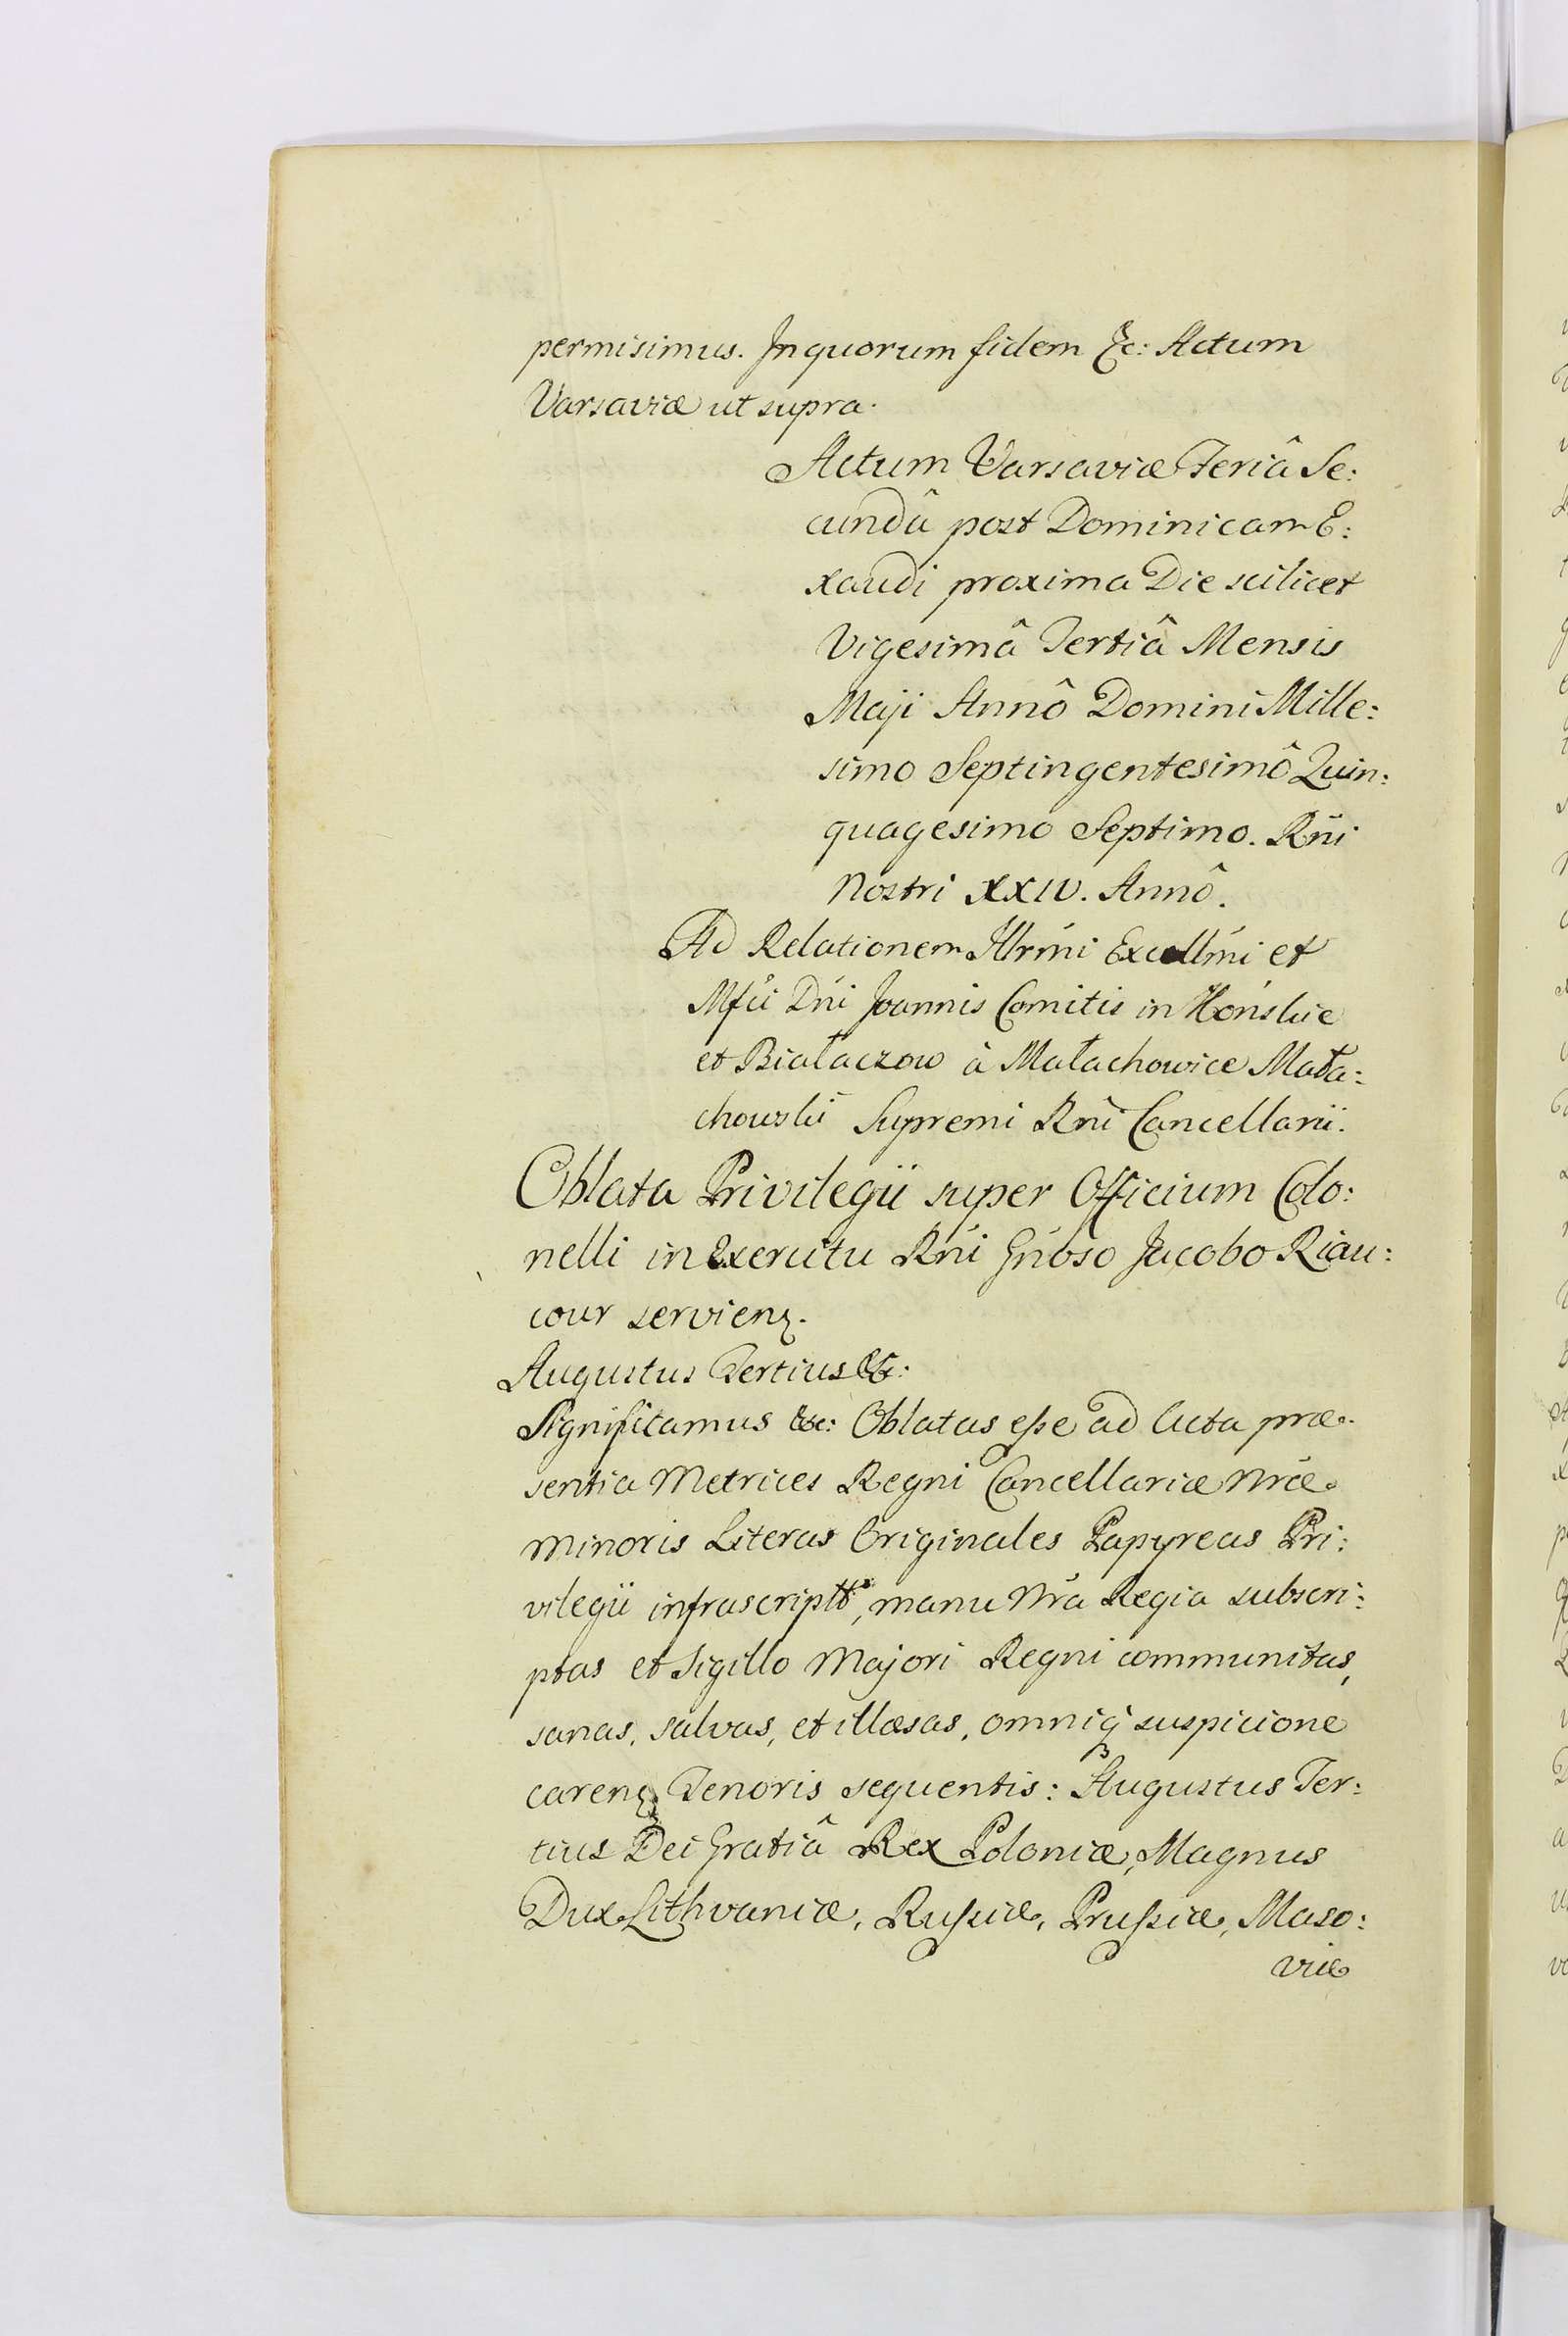 permisimus. In quorum fidem &c: Actum
Varsaviæ ut supra.
Actum Varsaviæ Feriâ Se:
cundâ post Dominicam E:
xaudi proxima Die scilicet
Vigesimâ Tertiâ Mensis
Maji Annô Domini Mille:
simo Septingentesimô Quin:
quagesimo Septimo. Rñi
Nostri XXIV. Annô.
Ad Relationem Illrmi Excellmi et
Mfci Dñi Joannis Comitis in Końskie
et Białaczow à Małachowice Mała:
chowski Supremi Rñi Cancellarii.
Oblata Privilegii super Officium Colo:
nelli in Exercitu Rñi Gnoso Jacobo Riau:
cour servienꝫ.
Augustus Tertius &c:
Significamus &c: Oblatas eſse ad Acta præ:
sentia Metrices Regni Cancellariæ Nræ
Minoris Literas Originales Papyreas Pri:
vilegii infrascriptt, manu Nra Regia subscri:
ptas et Sigillo Majori Regni communitas,
sanas, salvas, et illæsas, omniq̃ suspicione
carenꝫ Tenoris sequentis: Augustus Ter:
tius Dei Gratiâ Rex Poloniæ, Magnus
Dux Lithvaniæ, Ruſsiæ, Pruſsiæ, Maso:
viæ